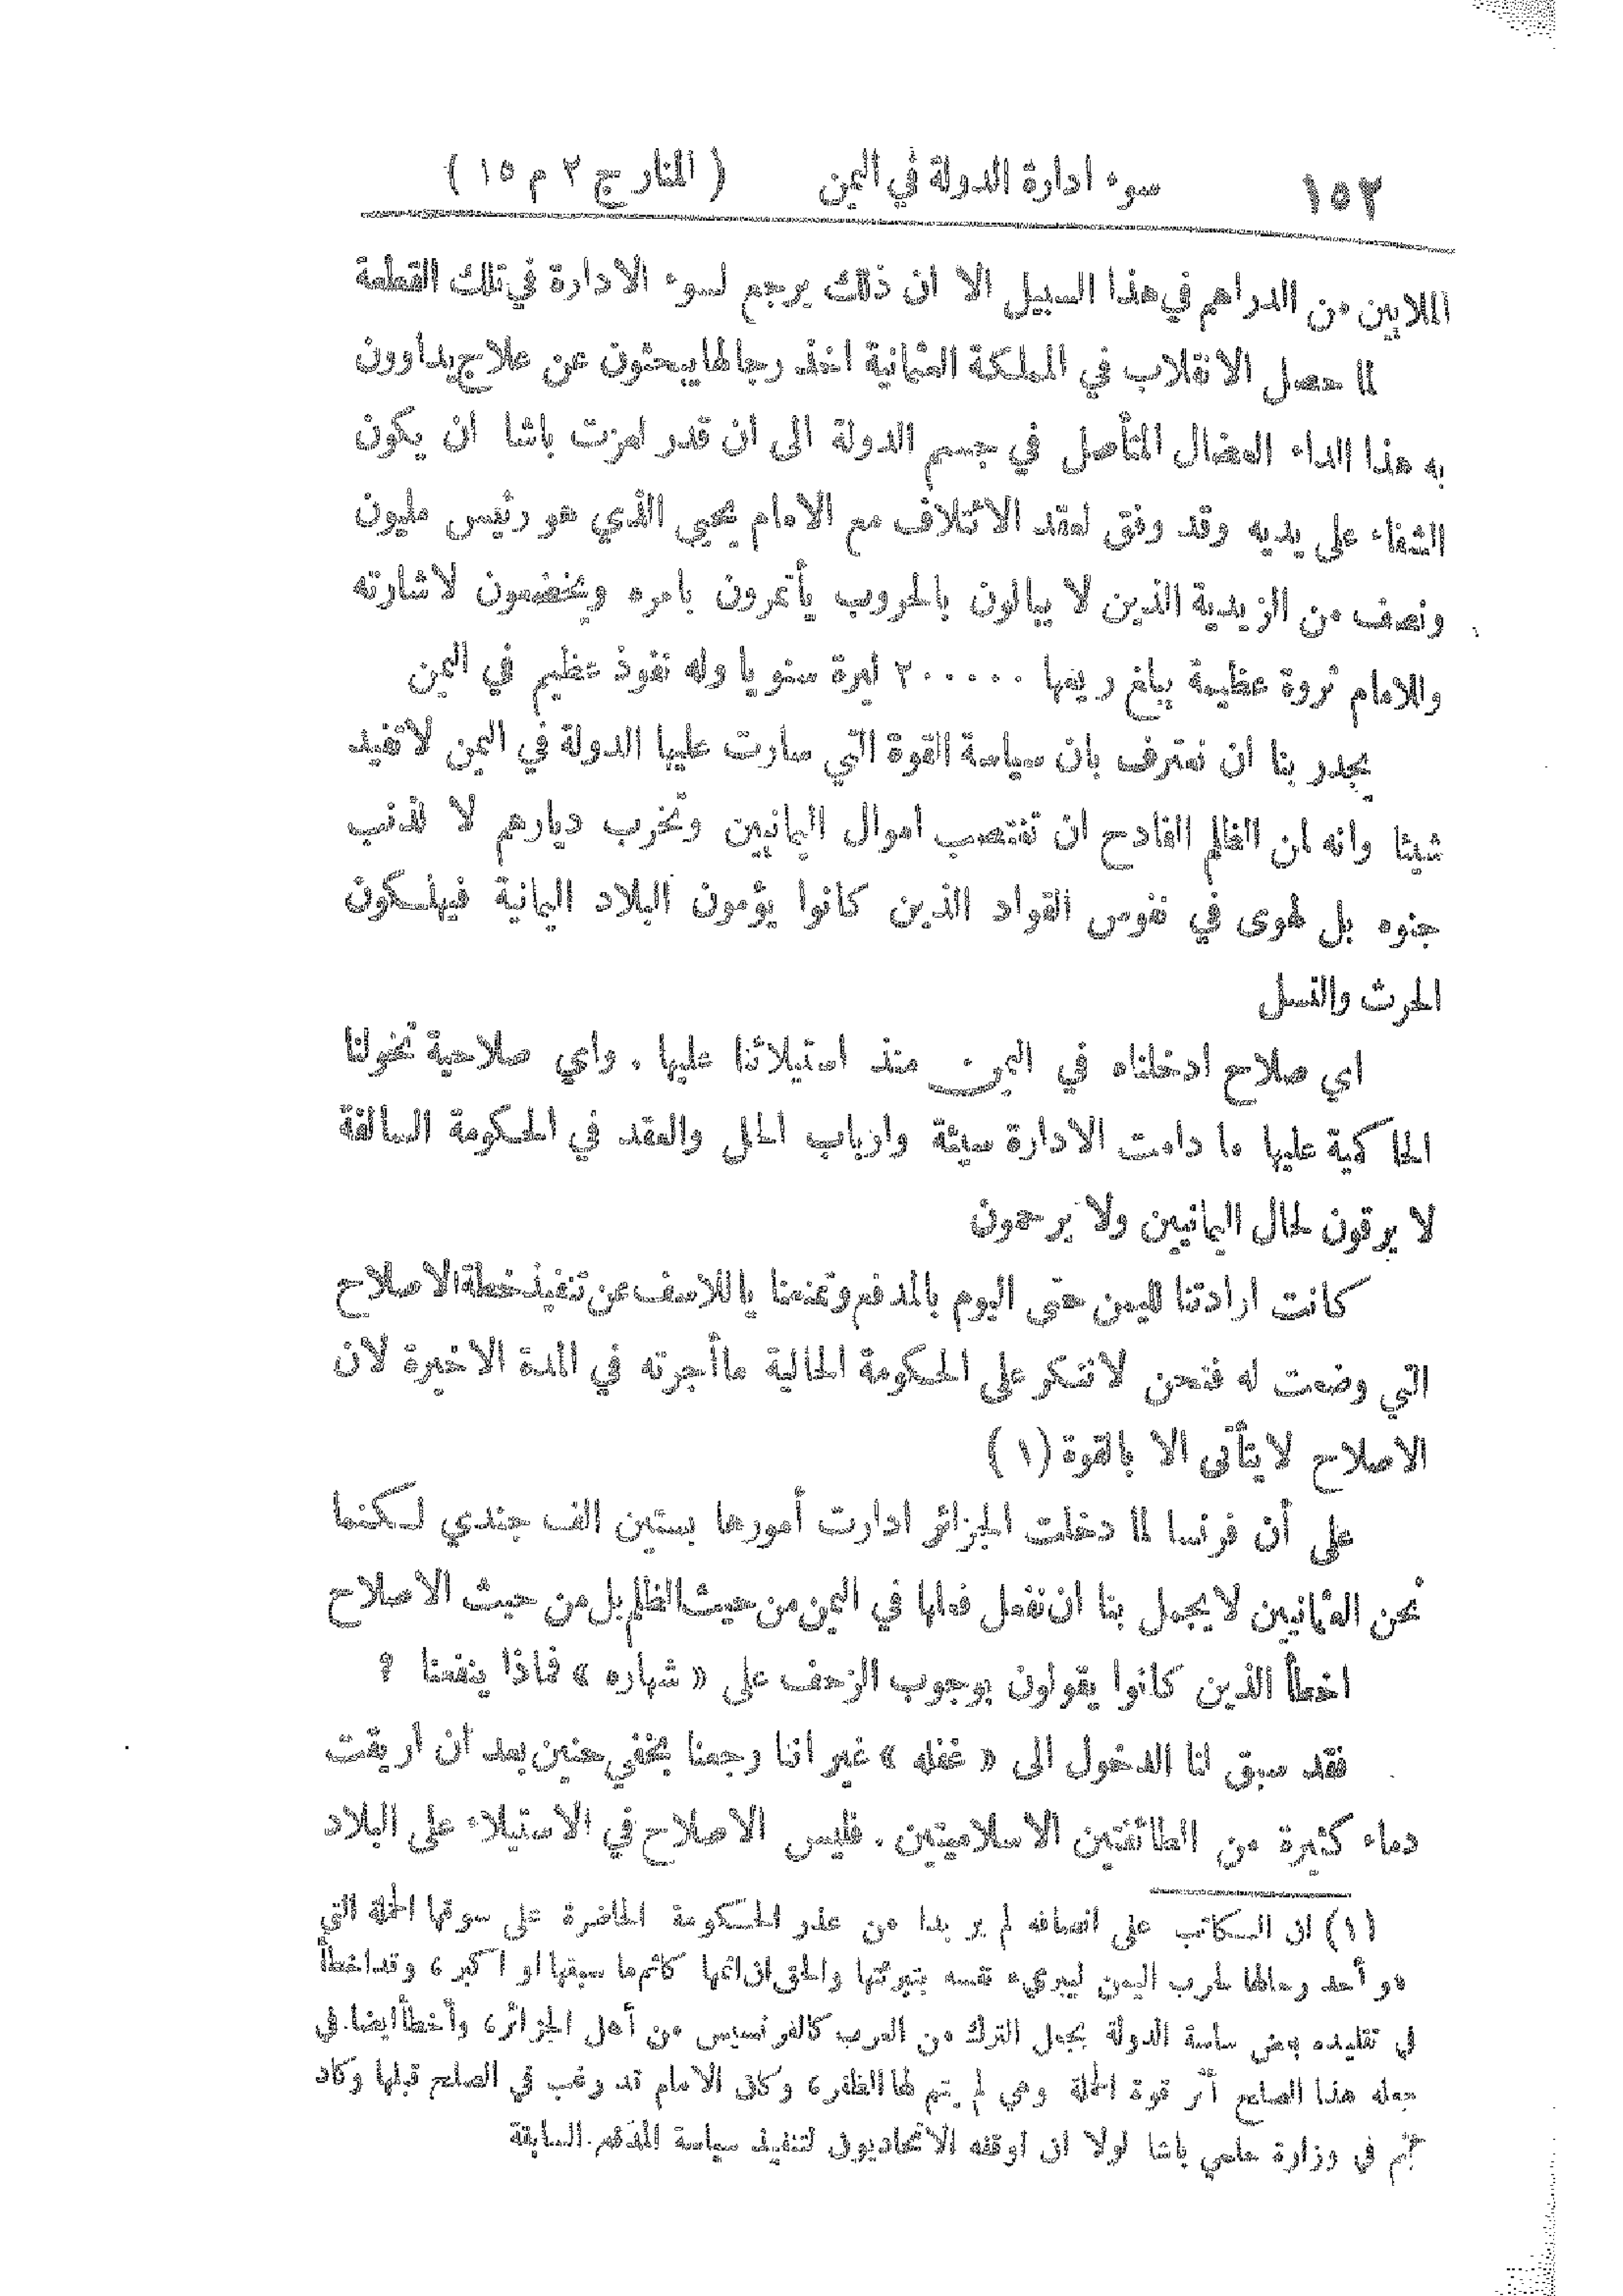 ١٥٢ سوء ادارة الدولة في اليمن ( المنار ج ٢ م ١٥ )
الملايين من الدراهم في هذا السبيل الا ان ذلك يرجع لسوء الادارة في تلك القطعة
لما حصل الانقلاب في المملكة العثمانية اخذ رجالها يبحثون عن علاج يداوون
به هذا الداء العضال المتأصل في جسم الدولة الى ان قدر لعزت باشا ان يكون
الشفاء على يديه وقد وفق لعقد الائتلاف مع الامام يحيى الذي هو رئيس مليون
ونصف من الزيدية الذين لا يبالون بالحروب يأتمرون بامره ويخضعون لاشارته
وللامام ثروة عظيمة يبلغ ريعها ٢٠٠٠٠٠ ليرة سنويا وله نفوذ عظيم في اليمن
يجدر بنا ان نعترف بان سياسة القوة التي سارت عليها الدولة في اليمن لا تفيد
شيئا وانه لمن الظلم الفادح ان تغتصب اموال اليمانيين وتخرب ديارهم لا لذنب
جنوه بل لهوى في نفوس القواد الذين كانوا يؤمون البلاد اليمانية فيهلكون
الحرث والنسل
اي صلاح ادخلناه في اليمن منذ استيلائنا عليها . واي صلاحية تخولنا
الحاكمية عليها ما دامت الادارة سيئة وارباب الحل والعقد في الحكومة السالفة
لا يرقون لحال اليمانيين ولا يرحمون
كانت ارادتنا لليمن حتى اليوم بالمدفع وتمنعنا ياللاسف عن تنفيذ خطة الاصلاح
التي وضعت له فنحن لا ننكر على الحكومة الحالية ما أجرته في المدة الاخيرة لان
الاصلاح لا يتأتى الا بالقوة (١)
على أن فرنسا لما دخلت الجزائر ادارت أمورها بستين الف جندي لكننا
نحن العثمانيين لا يجمل بنا ان نفعل فعلها في اليمن من حيث الظلم بل من حيث الاصلاح
اخطأ الذين كانوا يقولون بوجوب الزحف على « شهاره » فماذا ينفعنا ؟
فقد سبق لنا الدخول الى « غفله » غير اننا رجعنا بخفي حنين بعد ان اريقت
دماء كثيرة من الطائفتين الاسلاميتين . فليس الاصلاح في الاستيلاء على البلاد
(١) ان الكاتب على انصافه لم ير بدا من عذر الحكومة الحاضرة على سوقها الحملة التي
هو أحد رجالها لحرب اليمن ليبريء نفسه بتبرئتها والحق ان اثمها كاثم ما سبقها او اكبر ، وقد اخطأ
في تقليده بعض ساسة الدولة بجعل الترك من العرب كالفرنسيس من أهل الجزائر ، وأخطأ ايضا في
جعله هذا الصلح أثر قوة الحملة وهي لم يتم لها الظفر ، وكان الامام قد رغب في الصلح قبلها وكاد
يتم في وزارة حلمي باشا لولا ان اوقفه الاتحاديون لتنفيذ سياسة المدفع السابقة